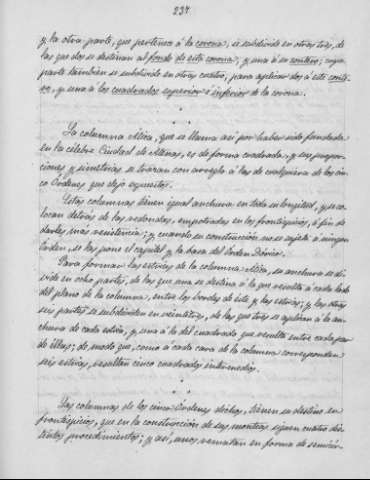 237.
y la otra parte, que pertenece á la corona, se subdivide en otras tres, de
las que dos se destinan al fondo de esta corona, y una á su centro; cuya
parte tambien se subdivide en otras cuatro, para aplicar dos á este cent-
ro, y una á los cuadrados superior é inferior de la corona.
La columna Atica, que se llama así por haber sido fundada
en la célebre Ciudad de Atenas, es de forma cuadrada, y sus propor-
ciones y simetrías se trazan con arreglo á las de cualquiera de los cin-
co Órdenes que dejo expuestos.
Estas columnas tienen igual anchura en toda su longitud, y se co-
locan detras de las redondas, empotradas en los frontispicios, á fin de
darles más resistencia; y cuando su construccion no se sujeta á ningun
Orden, se las pone el capitel y la basa del Orden Dórico.
Para formar las estrías de la columna Atica, su anchura se di-
vide en ocho partes, de las que una se destina á lo que resulta á cada lado
del plano de la columna, entre los bordes de éste y las estrías; y las otras
seis partes se subdividen en veintitres, de las que tres se aplican á la an-
chura de cada estría, y una á la del cuadrado que resulta entre cada par
de ellas; de modo que, como á cada cara de la columna corresponden
seis estrías, resultan cinco cuadrados intermedios.
Las columnas de los cinco Órdenes dichos, tienen su destino en
frontispicios, que en la construccion de sus monteas siguen cuatro dis-
tintos procedimientos; y así, unos rematan en forma de semicír-